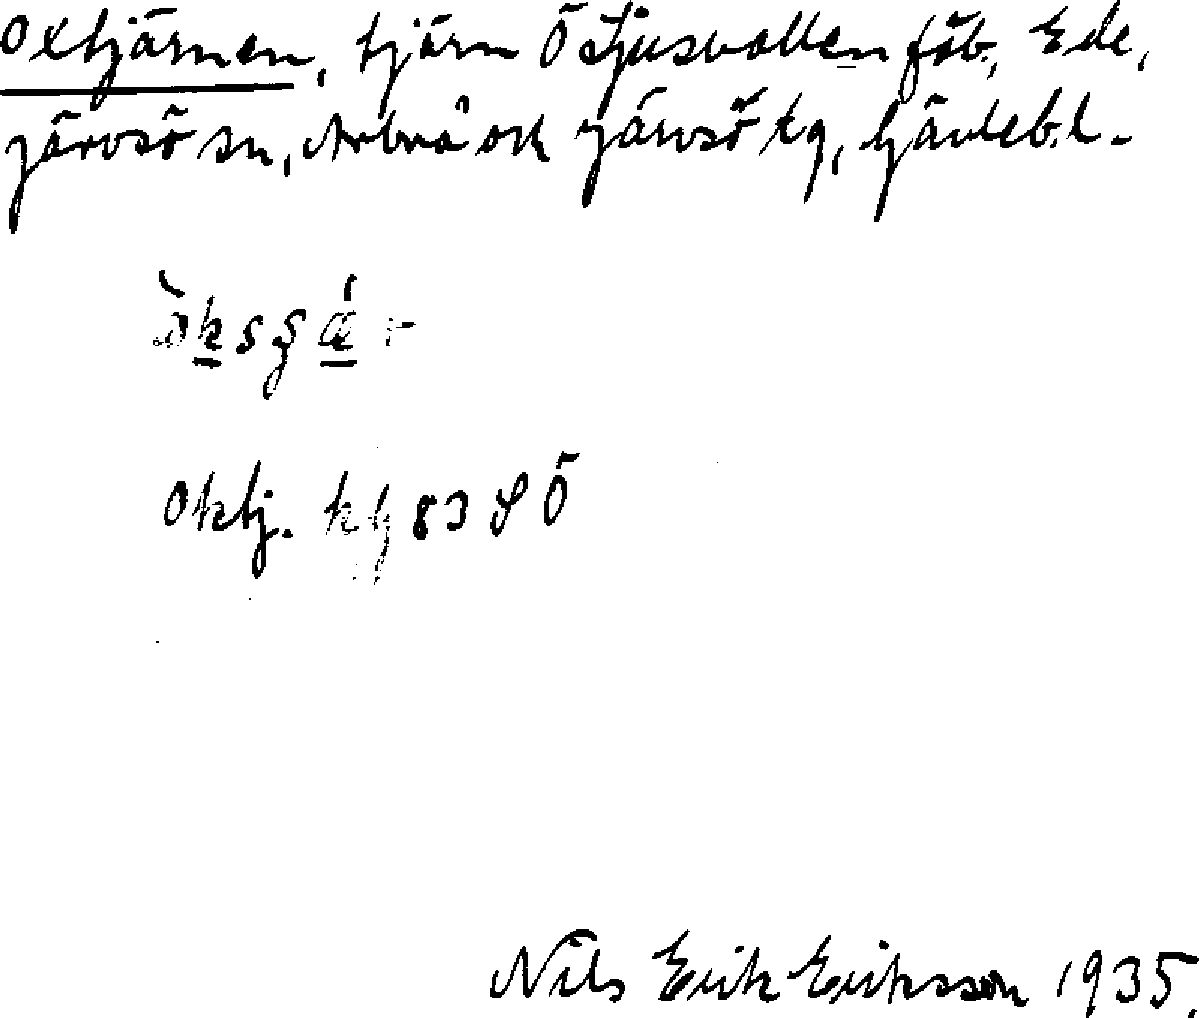 Oxtjärnen, tjärn Ö Ljusvallen fäb., Ede,
Järvsö sn, Arbrå och Järvsö tg, Gävleb.l.
Oktj. kbl 83 SÖ
Nils Erik Eriksson 1935.